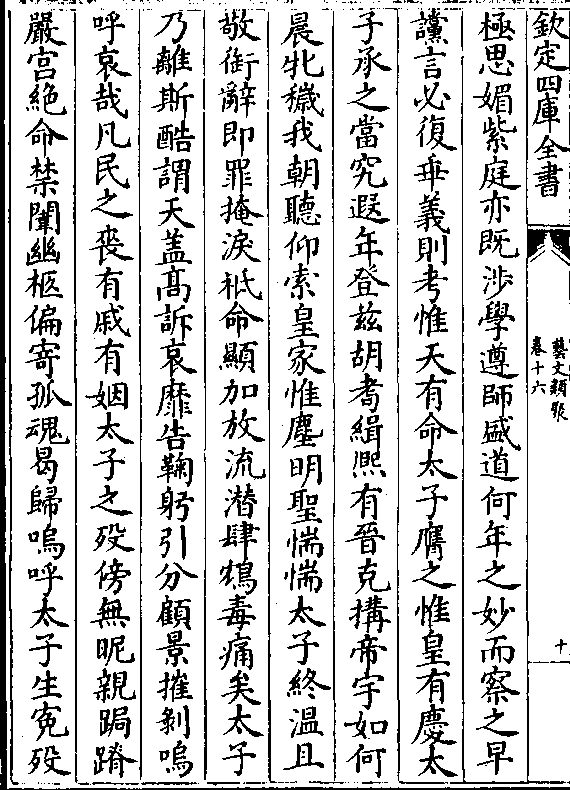 欽定四庫全書
藝文類聚
卷十六
十
極思媚紫庭亦既涉學遵師盛道何年之妙而察之早
讜言必復垂義則考惟天有命太子膺之惟皇有慶太
子承之當究遐年登兹胡耇緝熈有晉克搆帝宇如何
晨牝穢我朝聽仰索皇家惟塵明聖惴惴太子終溫且
敬銜辭即罪掩淚祗命顯加放流潜肆鴆毒痛矣太子
乃離斯酷謂天盖髙訴哀靡告鞠躬引分顧景摧剝嗚
呼哀哉凡民之喪有戚有姻太子之殁傍無昵親跼蹐
嚴宫絶命禁闈幽柩偏寄孤魂曷歸嗚呼太子生寃殁